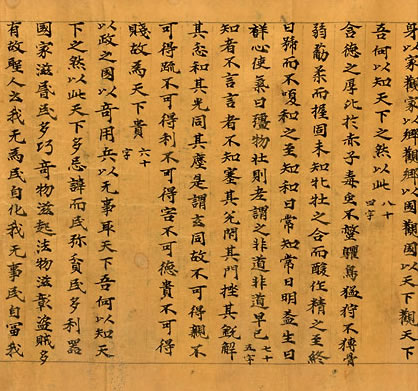 身以家觀家以鄉觀鄉以國觀國以天下觀天下
吾何以知天下之然以此 八十四字
含德之厚比於赤子毒虫不螫鳥猛狩不搏骨
弱筋柔而握固未知牝牡之合而酸作精之至終
日號而不嗄和之至知和曰常知常曰明益生曰
祥心使氣曰彊物壯則老謂之非道非道早已 七十五字
知者不言言者不知塞其兌閉其門挫其銳解
其忿和其光同其塵是謂玄同故不可得親不
可得疏不可得利不可得害不可德貴不可得
賤故為天下貴 六十字
以政之國以奇用兵以无事取天下吾何以知天
下之然以此天下多忌諱而民弥貧民多利器
國家滋昏民多巧奇物滋起法物滋彰盜賊多
有故聖人云我无為民自化我无事民自冨我